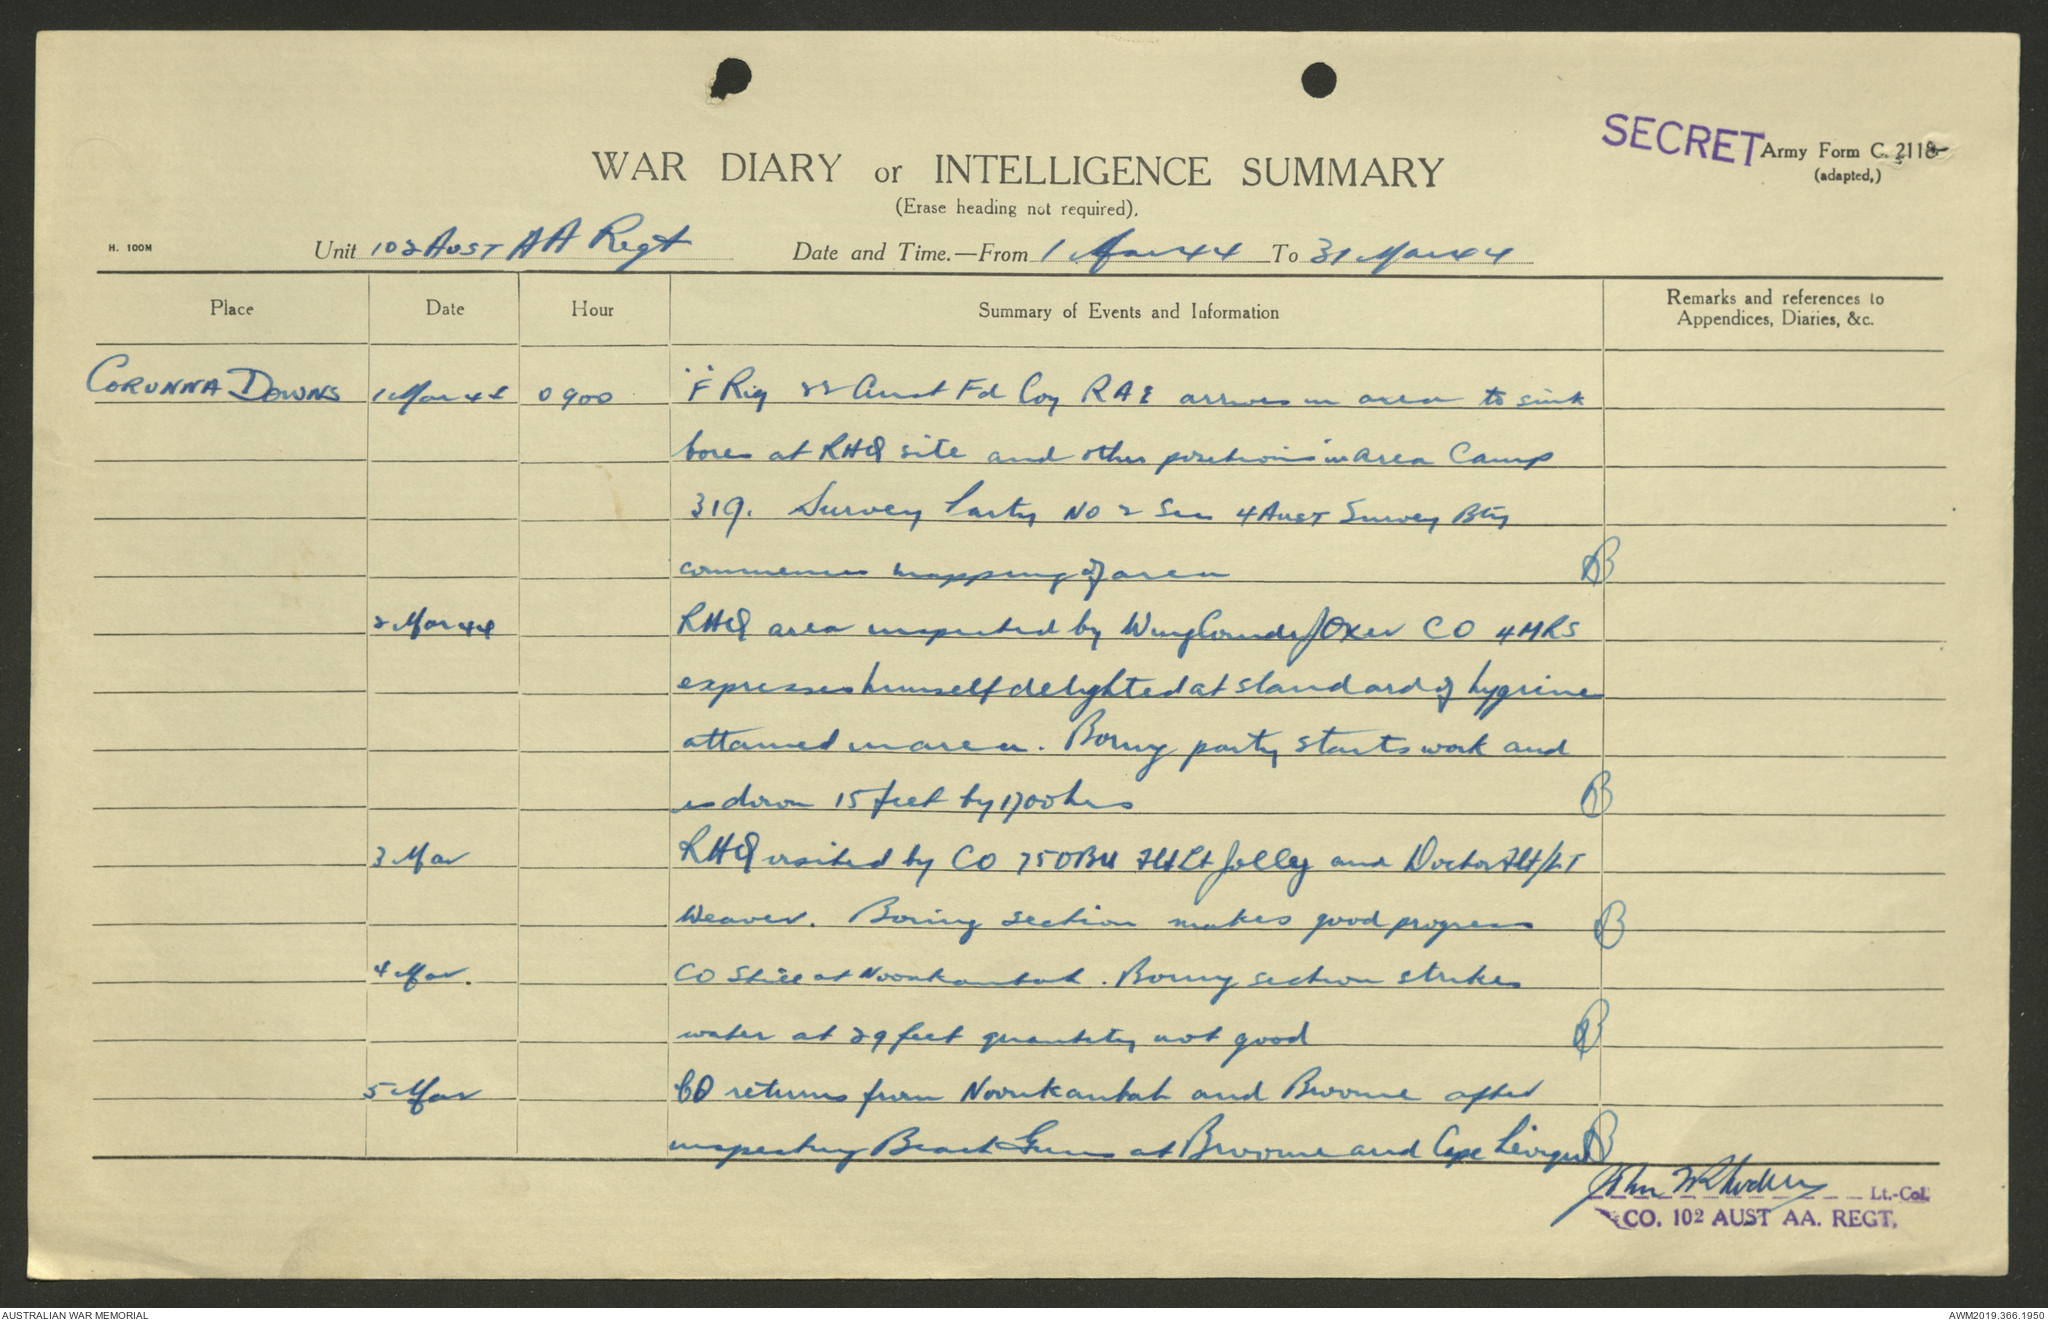 SECRET
Army Form C. 2118
(adapted,)
WAR DIARY or INTELLIGENCE SUMMARY
(Erase heading not required).
H. 100M
Unit 102 AUST AA Regt Date and Time.—From 1 Mar 44 To 31 Mar 44
Place Date Hour Summary of Events and Information Remarks and references to
Appendices, Diaries, &c.
CORUNNA DOWNS 1 Mar 44 0900 "F" Rig 22 Aust Fd Coy RAE arrives in area to sink
bores at RHQ site and other positions in area Camp
319. Survey Party NO 2 Sec 4 AUST Survey Bty
commences mapping of area
2 Mar 44 RHQ area inspected by Wing Comdr Oxer CO 4 MRS
expresses himself delighted at standard of hygiene
attained in area. Boring party starts work and
is down 15 feet by 1700 hrs
3 Mar RHQ visited by CO 75 OBU Flt Lt Jolley and Doctor Flt/LT
Weaver. Boring section makes good progress
4 Mar. CO still at Noonkanbah. Boring section strikes
water at 29 feet quantity not good
5 Mar CO returns from Noonkanbah and Broome after
inspecting Beach Guns at Broome and Cape Leveque
John Lt.-Col.
CO. 102 AUST AA. REGT.
AUSTRALIAN WAR MEMORIAL AWM2019.366.1950